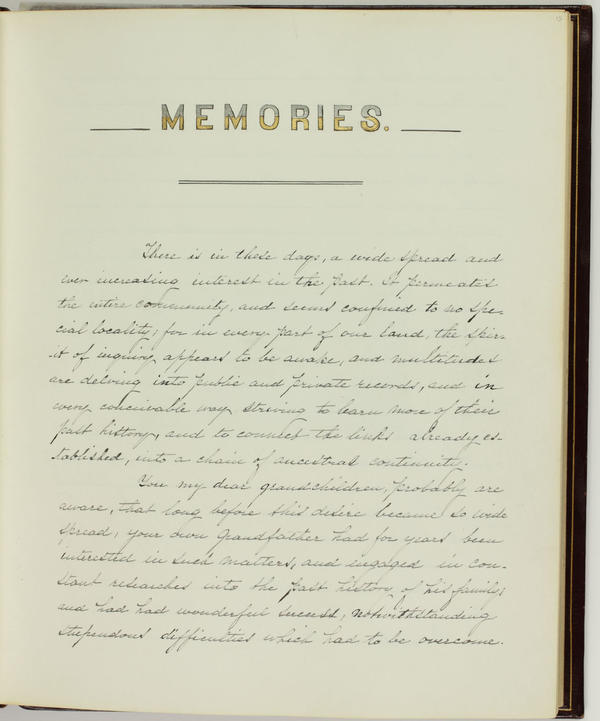 MEMORIES.
There is in these days, a wide spread and
ever increasing interest in the past. It permeates
the entire community, and seems confined to no spe-
cial locality; for in every part of our land, the spir-
it of inquiry appears to be awake, and multitudes
are delving into public and private records, and in
every conceivable way striving to learn more of their
past history, and to connect the links already es-
tablished, into a chain of ancestral continuity.
You my dear grandchildren, probably are
aware, that long before this desire became so wide
spread, your own Grandfather had for years been
interested in such matters, and engaged in con-
stant researches into the past history of his family;
and had had wonderful success, notwithstanding
stupendous difficulties which had to be overcome.